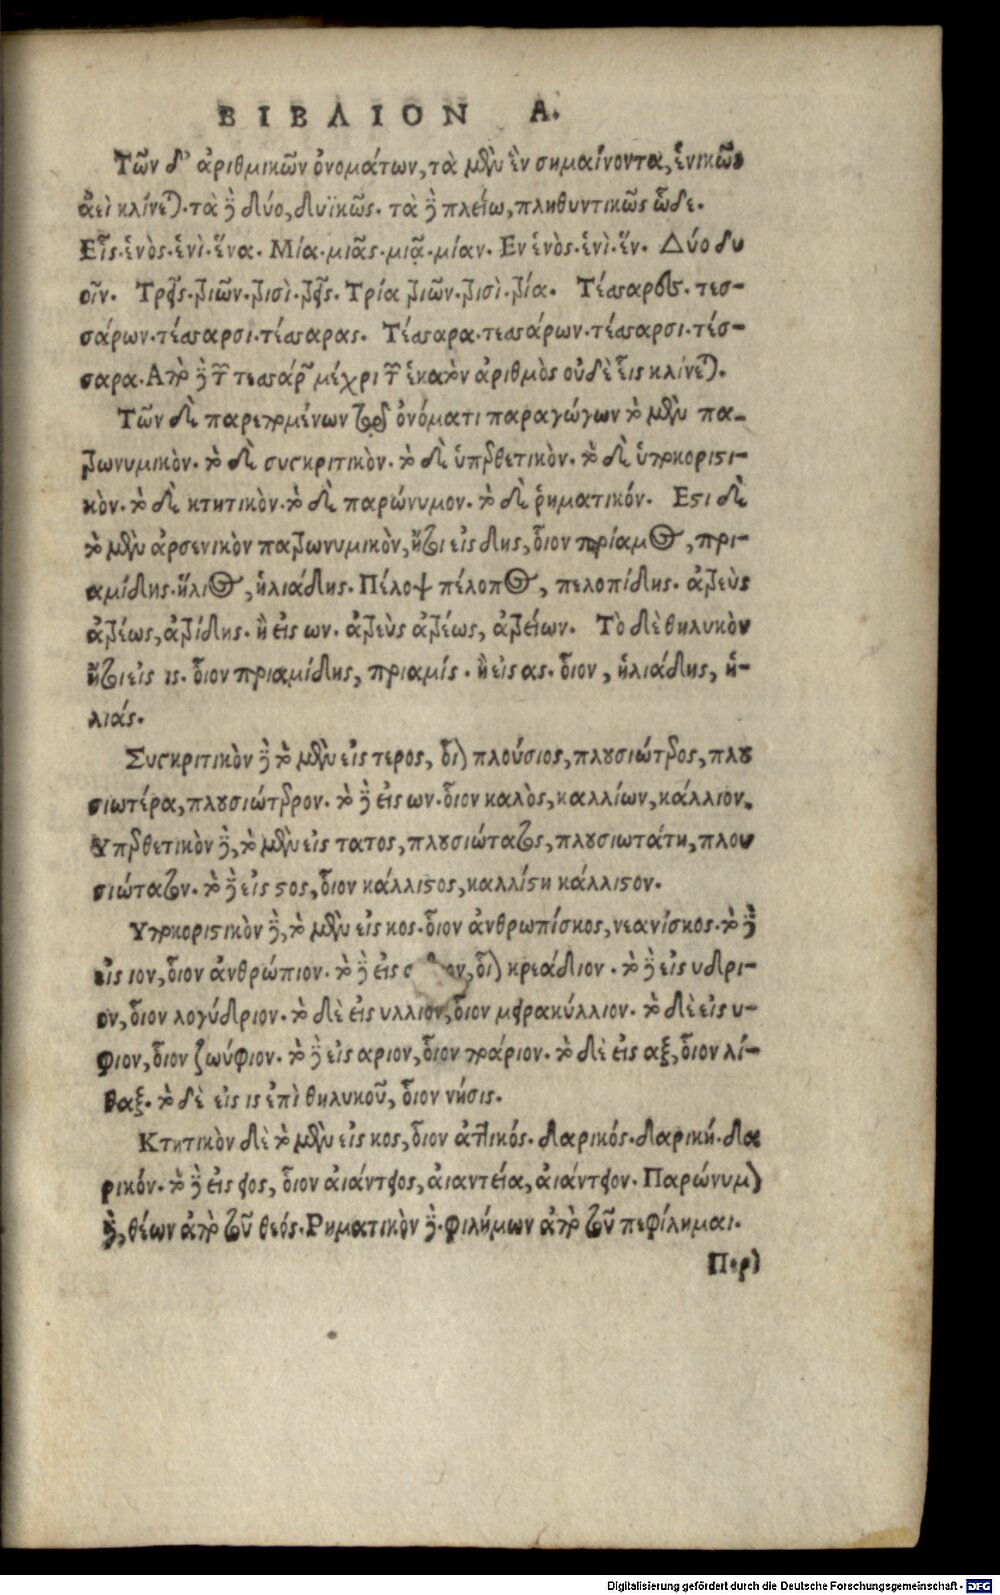 ΒΙΒΛΙΟΝ Α.
Τῶν δ' ἀριθμικῶν ὀνομάτων, τὰ μὲν ἓν σημαίνοντα, ἑνικῶς
ἀεὶ κλίνεται. τὰ δὲ δύο, δυϊκῶς. τὰ δὲ πλείω, πληθυντικῶς ὧδε.
Εἷς. ἑνὸς. ἑνὶ. ἕνα. Μία. μιᾶς. μιᾷ. μίαν. Εν ἑνὸς. ἑνὶ. ἕν. Δύο δυ
οῖν. Τρεῖς. τριῶν. τρισὶ. τρεῖς. Τρία τριῶν. τρισὶ. τρία. Τέσσαρες. τεσ-
σάρων. τέσσαρσι. τέσσαρας. Τέσσαρα. τεσσάρων. τέσσαρσι. τέσ-
σαρα. Απὸ δὲ τοῦ τεσσάρων μέχρι τοῦ ἑκατὸν ἀριθμὸς οὐδὲ εἷς κλίνεται.
Τῶν δὲ παρεπομένων τῷ ὀνόματι παραγώγων τὸ μὲν πα-
τρωνυμικὸν. τὸ δὲ συγκριτικὸν. τὸ δὲ ὑπερθετικὸν. τὸ δὲ ὑποκοριστι-
κὸν. τὸ δὲ κτητικὸν. τὸ δὲ παρώνυμον. τὸ δὲ ῥηματικόν. Εστι δὲ
τὸ μὲν ἀρσενικὸν πατρωνυμικὸν, ἤτοι εἰς δης, οἷον πρίαμος, πρι-
αμίδης. ἥλιος, ἡλιάδης. Πέλοψ πέλοπος, πελοπίδης. ἀτρεὺς
ἀτρέως, ἀτρίδης. ἢ εἰς ων. ἀτρεὺς ἀτρέως, ἀτρείων. Τὸ δὲ θηλυκὸν
ἤτοι εἰς ις. οἷον πριαμίδης, πριαμίς. ἢ εἰς ας. οἷον, ἡλιάδης, ἡ-
λιάς.
Συγκριτικὸν δὲ τὸ μὲν εἰς τερος, οἷον πλούσιος, πλουσιώτερος, πλου
σιωτέρα, πλουσιώτερον. τὸ δὲ εἰς ων. οἷον καλὸς, καλλίων, κάλλιον.
Υπερθετικὸν δὲ, τὸ μὲν εἰς τατος, πλουσιώτατος, πλουσιωτάτη, πλου
σιώτατον. τὸ δὲ εἰς στος, οἷον κάλλιστος, καλλίστη κάλλιστον.
Υποκοριστικὸν δὲ, τὸ μὲν εἰς κος. οἷον ἀνθρωπίσκος, νεανίσκος. τὸ δὲ
εἰς ιον, οἷον ἀνθρώπιον. τὸ δὲ εἰς οἷον κρεάδιον. τὸ δὲ εἰς υδρι-
ον, οἷον λογύδριον. τὸ δὲ εἰς υλλιον, οἷον μειρακύλλιον. τὸ δὲ εἰς υ-
φιον, οἷον ζωύφιον. τὸ δὲ εἰς αριον, οἷον πάριον. τὸ δὲ εἰς αξ, οἷον λί-
θαξ. τὸ δὲ εἰς ις ἐπὶ θηλυκοῦ, οἷον νήσις.
Κτητικὸν δὲ τὸ μὲν εἰς κος, οἷον ἀττικός. δαρικός. δαρική. δα
ρικόν. τὸ δὲ εἰς ειος, οἷον αἰάντειος, αἰαντεία, αἰάντειον. Παρώνυμον
δὲ, θέων ἀπὸ τοῦ θεός. Ρηματικὸν δὲ. φιλήμων ἀπὸ τοῦ πεφίλημαι.
Περὶ
Digitalisierung gefördert durch die Deutsche Forschungsgemeinschaft - DFG